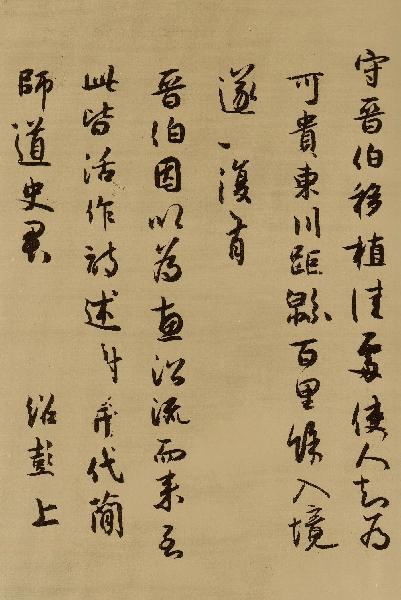 守晉伯移植佳處使人知為
可貴東川距綿百里餘入境
遂一復有
晉伯因以為惠沿流而來至
此皆活作詩述謝并代簡
師道史君 紹彭上